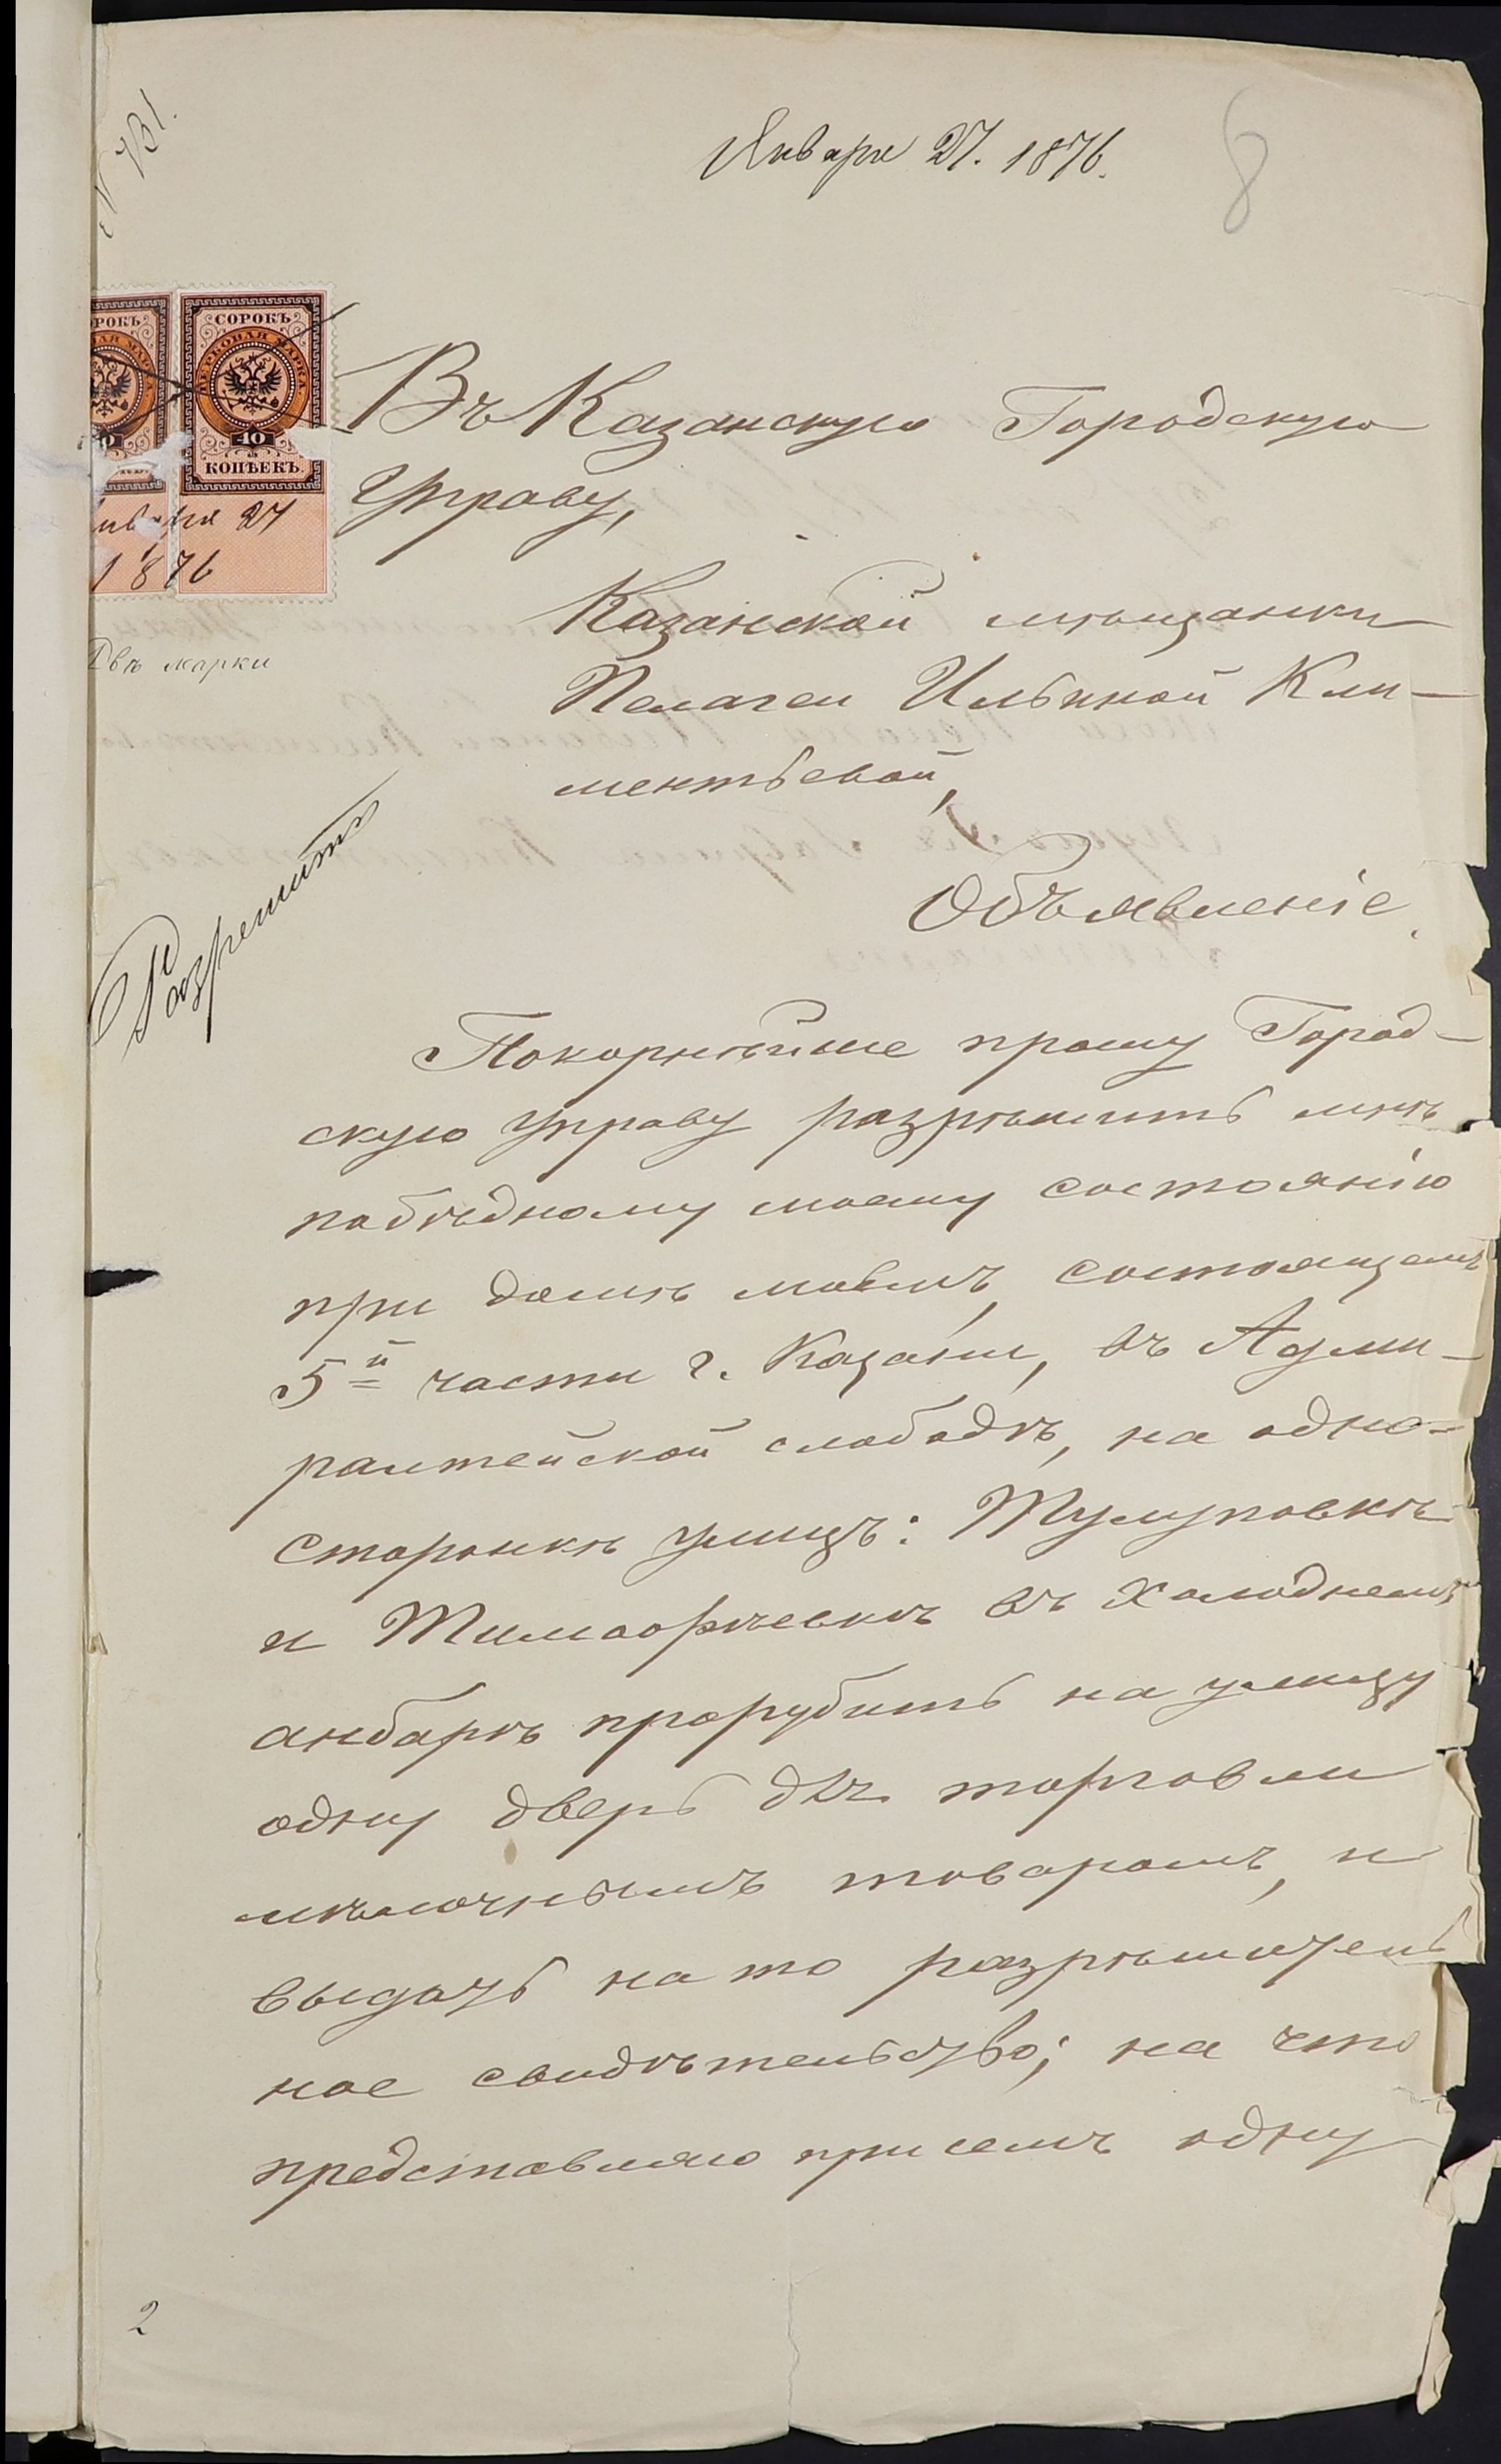 N 731.
Января 27. 1876.
8
СОРОКЪ
ГЕРБОВАЯ МАРКА
40
КОПѢЕКЪ
Января 27
1876
Двѣ марки
Въ Казанскую Городскую
Управу,
Казанской мѣщанки
Пелагеи Ильиной Кли-
ментьевой,
Объявленіе.
Разрешить
Покорнѣйше прошу Город-
скую Управу разрѣшить мнѣ
побѣдному моему состоянію
при домѣ моемъ, состоящемъ
5й части г. Казани, въ Адми-
ралтейской слободѣ, на одно-
сторонкѣ улицъ: Тулуповкѣ
и Тимофѣевкѣ въ холоднемъ
анбарѣ прорубить на улицу
одну дверь для торговли
мѣлочнымъ товаромъ, и
выдать на то разрѣшитель
ное свидѣтельство; на что
представляю при семъ одну
2